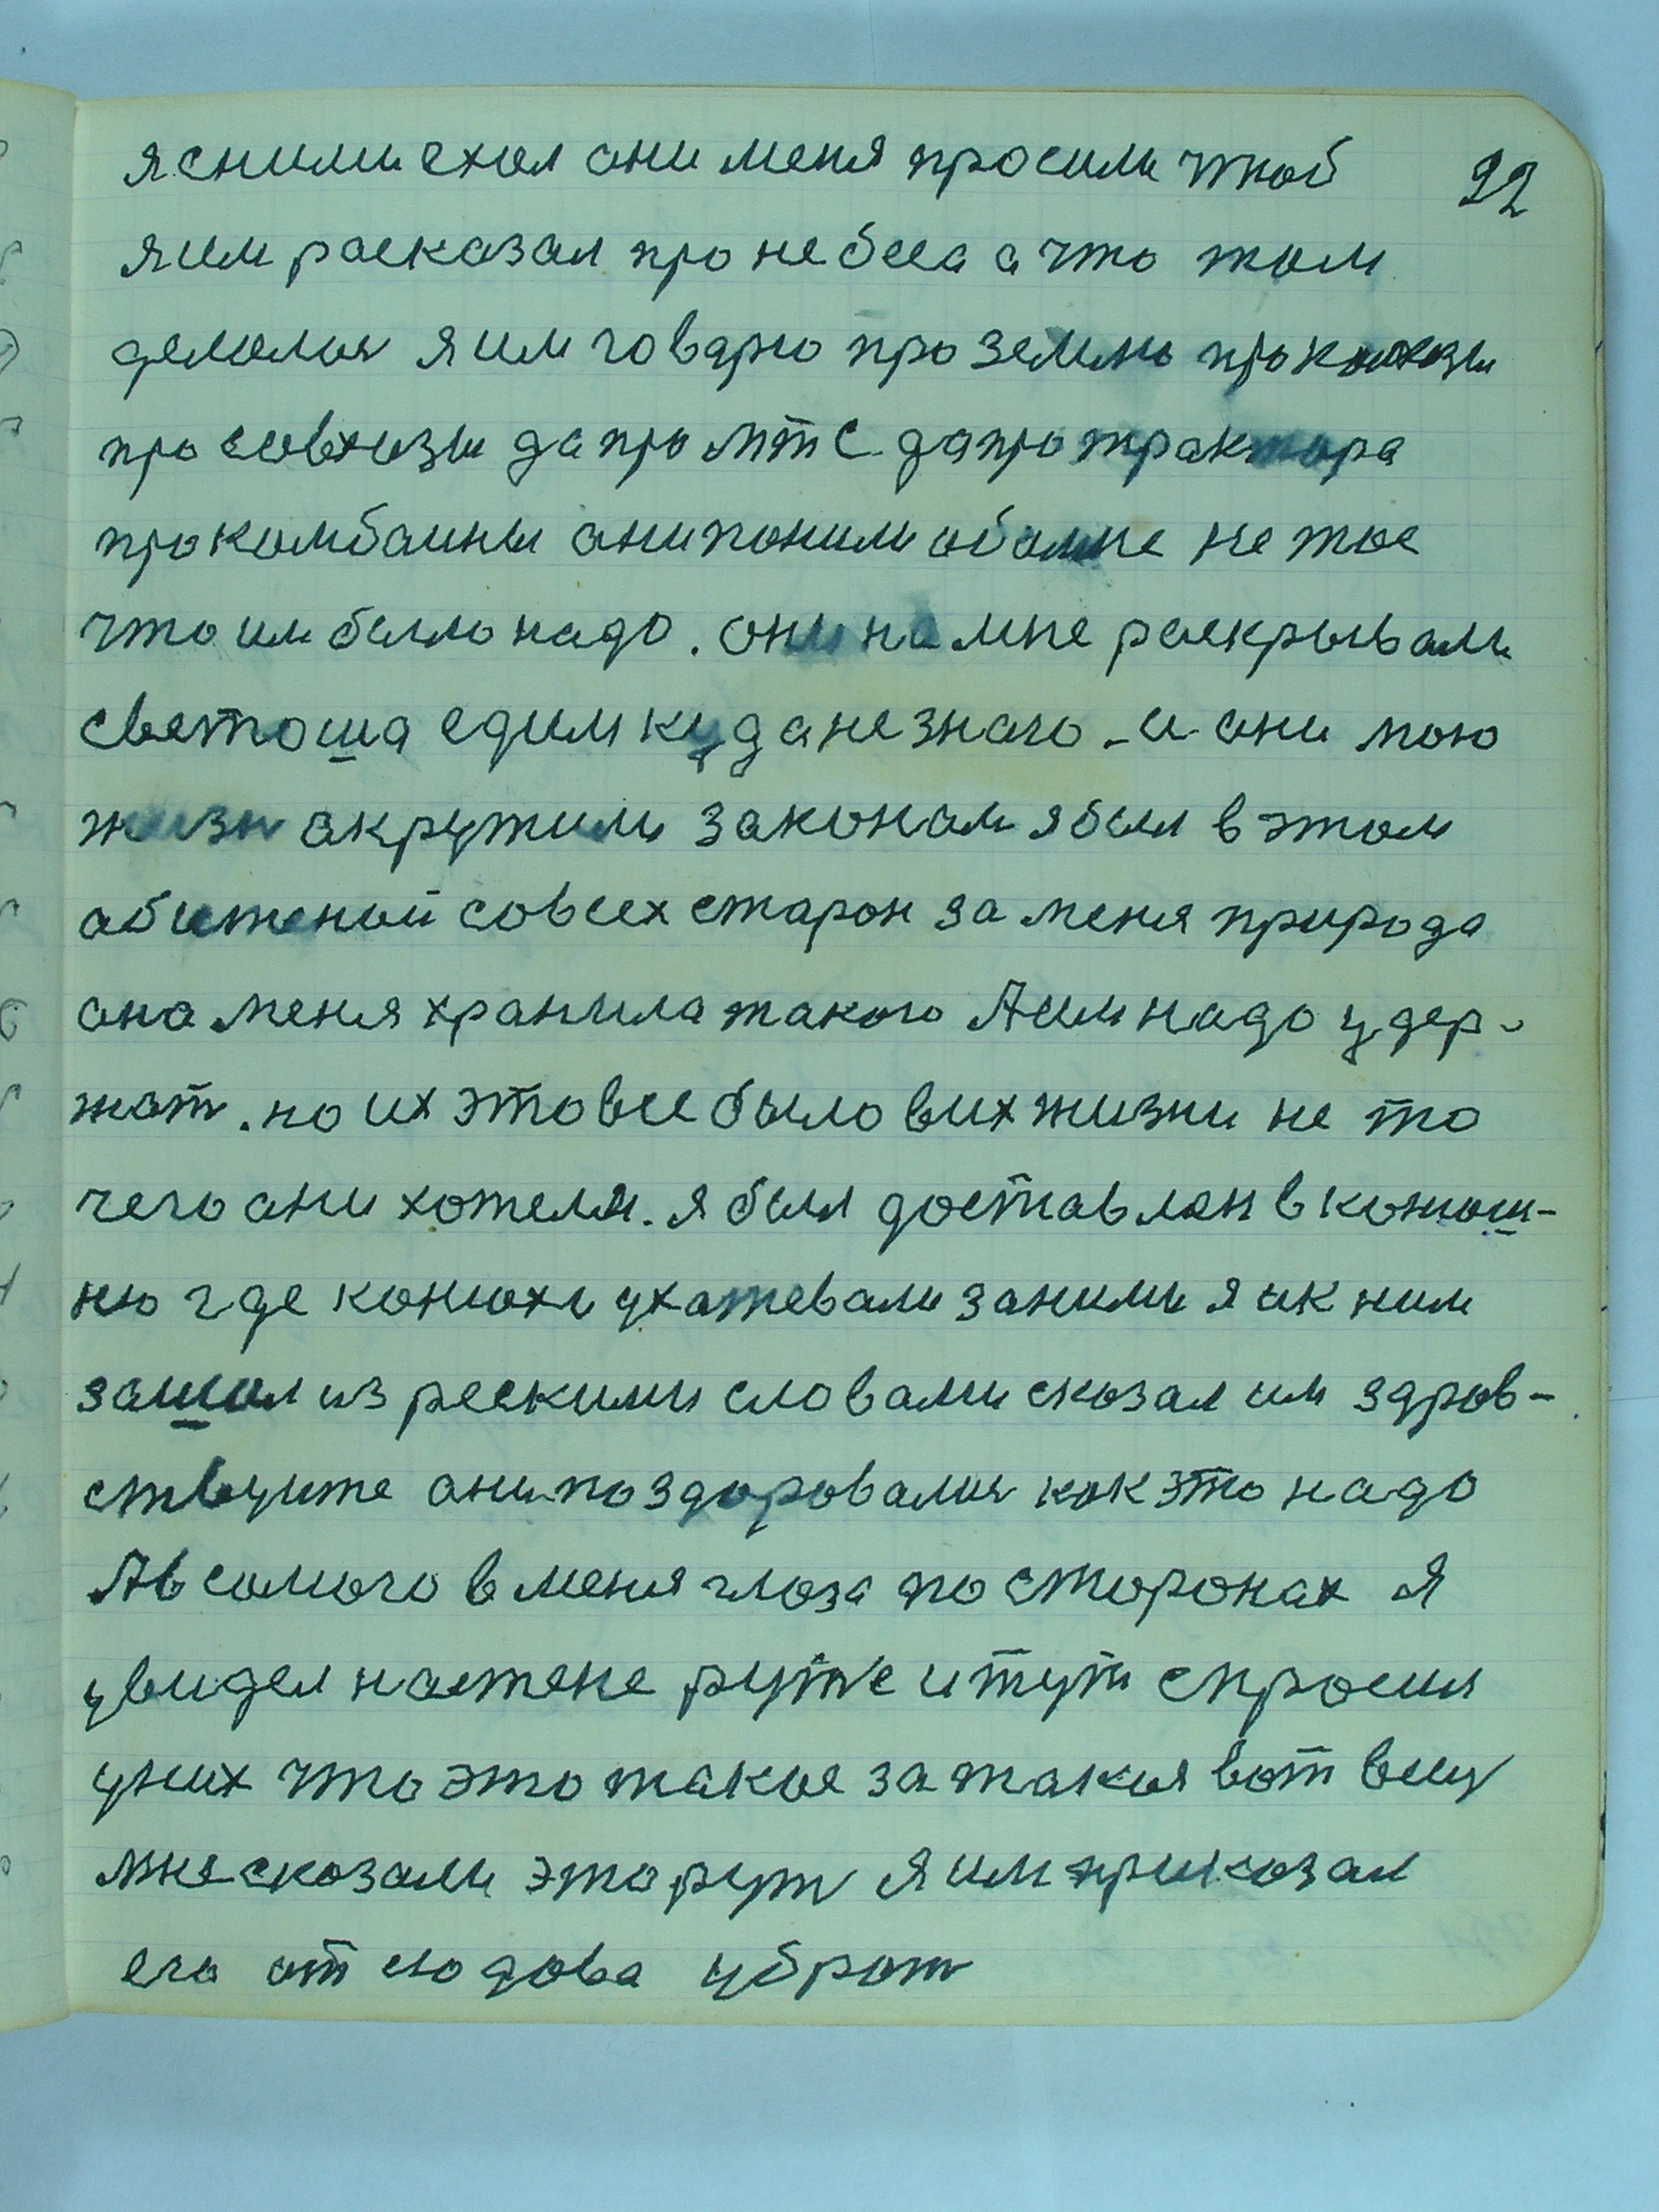 я сними ехал они меня просили чтоб 22
я им расказал про небеса а что там
делалося я им говарю про землю про колхозы
про совхозы да про мтс да про трактора
про комбаины они поняли обо мне не тое
что им было надо. они на мне раскрывали
светоша едим куда не знаю - и они мою
жизн окружили законом я был в этом
обиженой со всех старон за меня природа
она меня хранила такого А им надо удер-
жат. но их это все было в их жизни не то
чего они хотели. я был доставлен в конюш-
ню где конюхи ухажевали заними я ик ним
зашол из рескими словами сказал им здрав-
ствуите они поздаровалися как это надо
Ав самого в меня глаза по сторонах Я
увидел на стене рутке и тут спросил
уних что это такое за такия вот вещ
мне сказали это рут Я им приказал
его от сюдова убрат